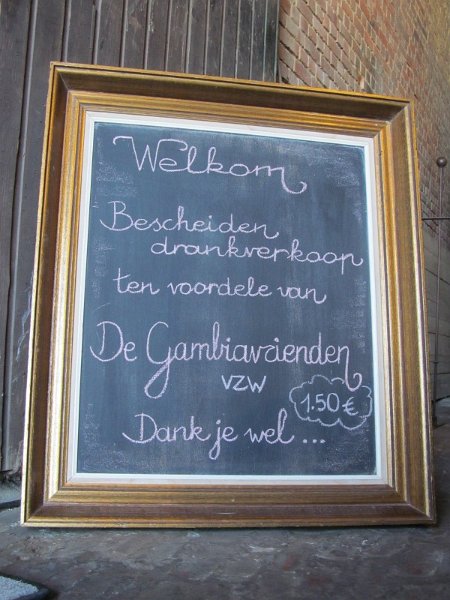 Welkom
Bescheiden
drankverkoop
ten voordele van
De Gambiavrienden
VZW
1.50 €
Dank je wel ...